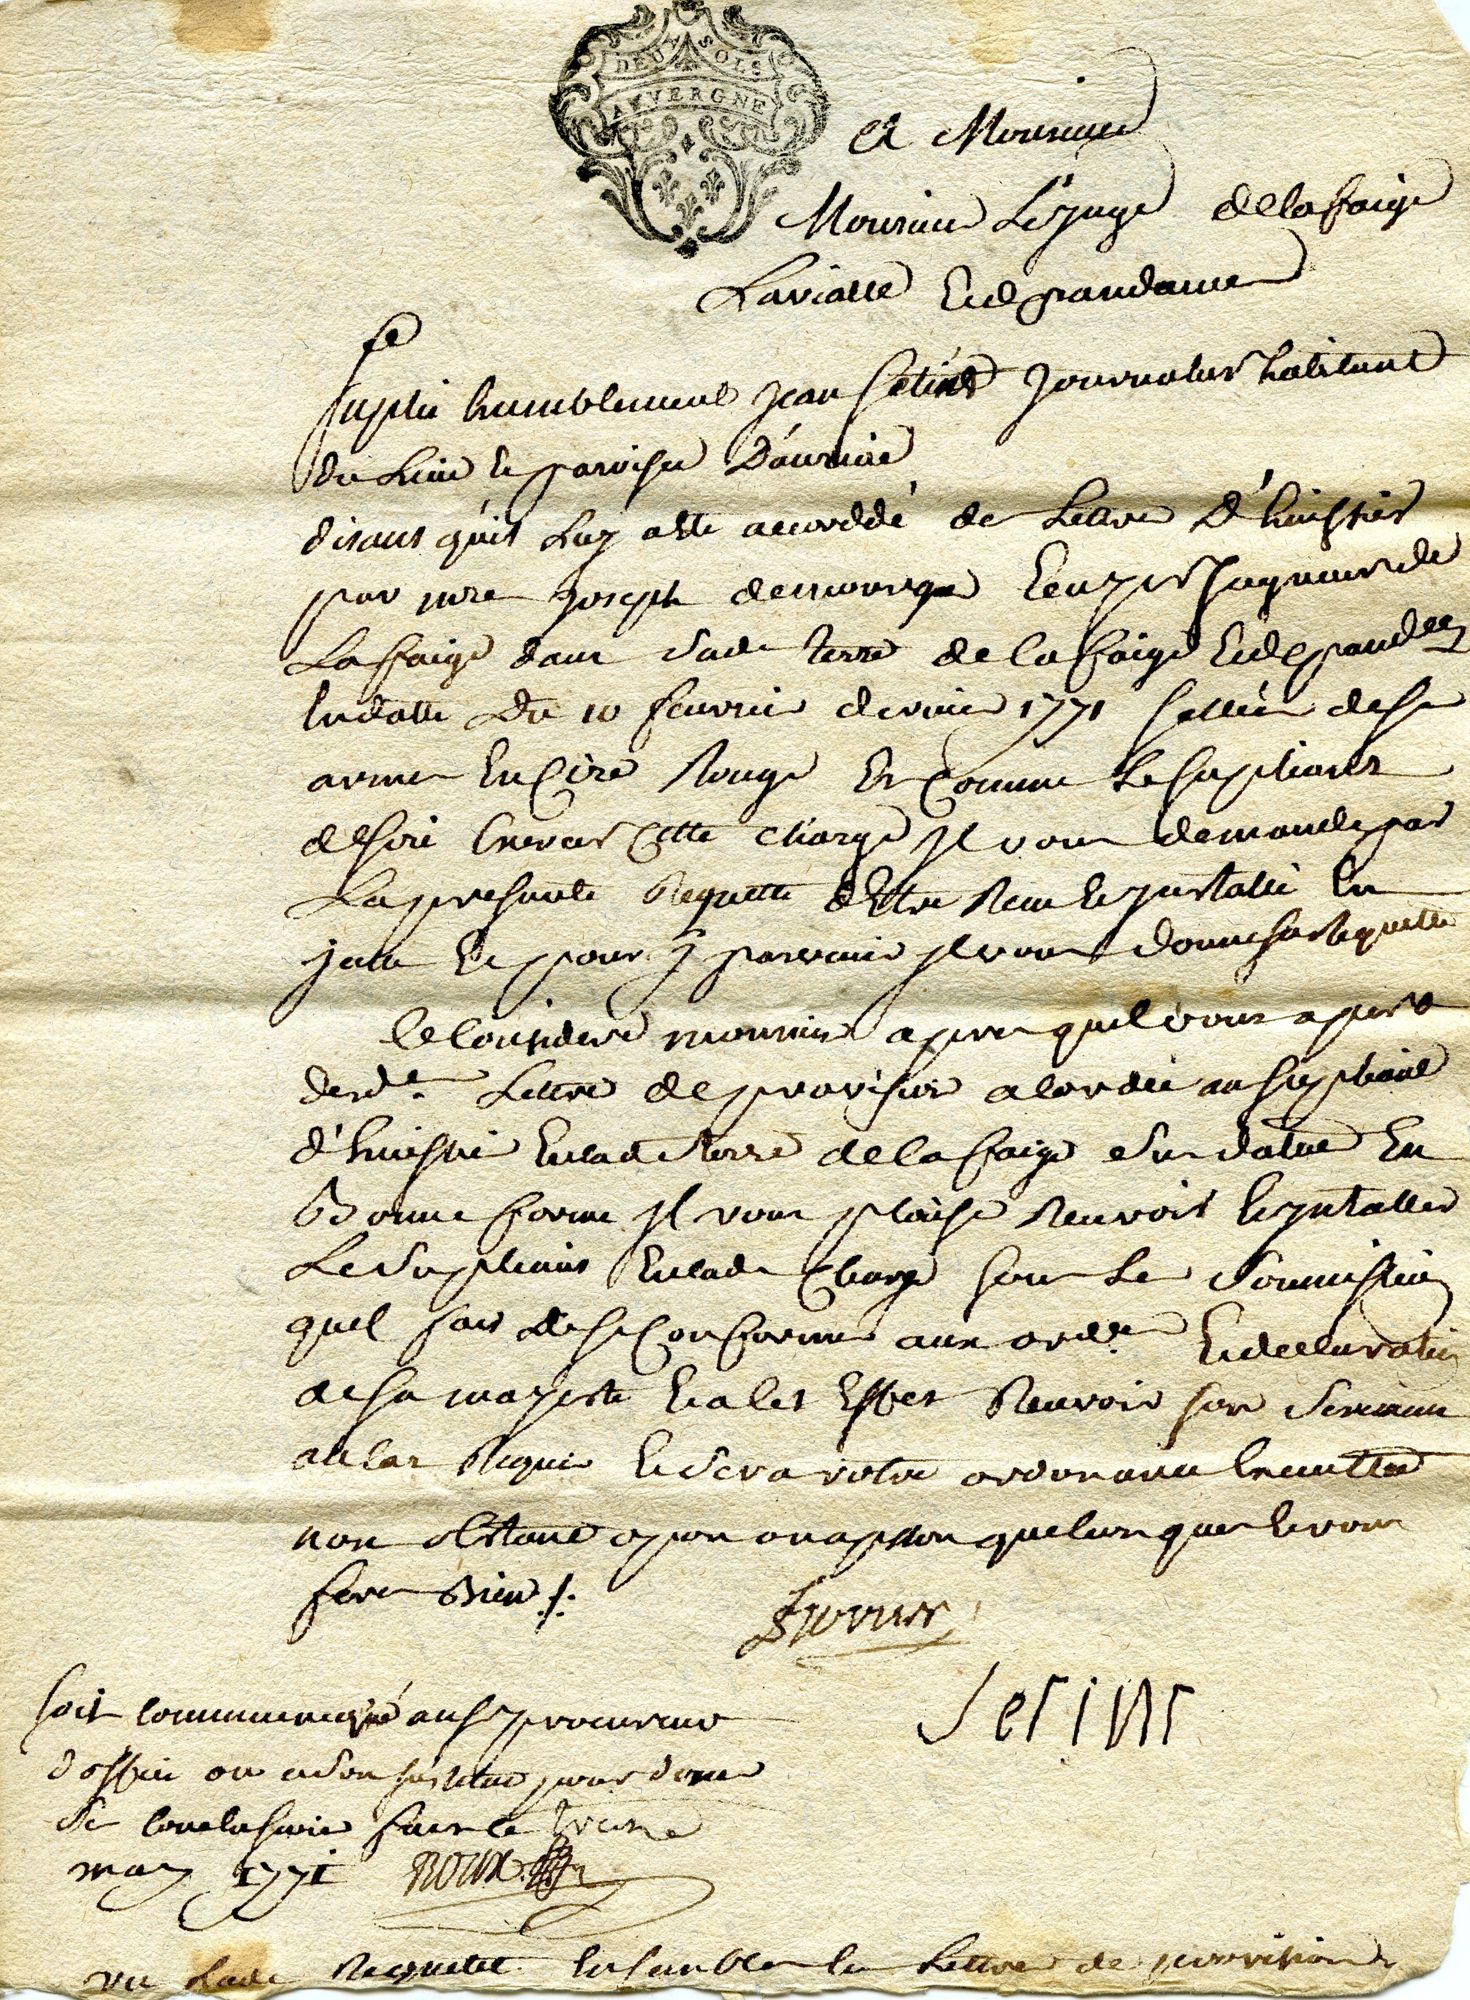 DEUX SOLS
AUVERGNE
A Monsieur
Monsieur Le Juge de la faige
Lavialle Et de grandamee
Se
Suplie humblement jean journalier habitant
du Lieu et paroisse
disant quil Luy atte accorddé de Lettre d'huissier
par mre joseph Seigneur de
La faige dans Sade terre de la faige Et de
En datte Du 10 feuvrier dernier 1771 sellée de se
armes En Cire Rouge Et Comme Le supliant
desire Exercer Cette Charge jl vous demande par
La presente Requette dEtre Receu Et jnstallé En
jcelle Et pour y parvenir jl vous donne sa Requette
Ce Considere monsieur apres quil vous apert
desd. Lettre de provision acordée au supliant
d'huissier En lad terre de la faige Et Sur datue En
Bonne forme jl vous plaise Recevoir Et jnstaller
Le Supliant En lade Charge sous Le Soumission
quil fait de se Conformer aux ord. Et declaration
de sa majesté Et a Cet Effet Recevoir son Serment
au Cas Requis Et Sera votre ordonnance Executtée
non obstant opon ou apsson quelconques Et vous
feres Bien
soit communiqué au sr procureur
d'office ou a Son sustitut pour donner
Se Conclusion fait le
may 1771 ROUX
vu lade Requette Ensemble la Lettre de provision